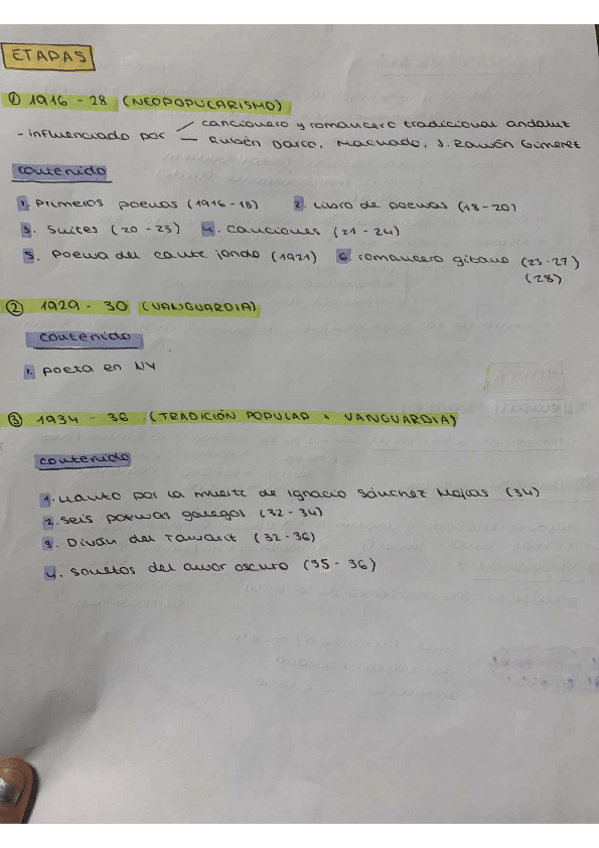 ETAPAS
① 1916 - 28 (NEOPOPULARISMO)
- influenciado por — cancionero y romancero tradicional andaluz
— Rubén Darco, Machado, J. Ramón Gimenez
contenido
1. Primeros poemas (1916-18) 2. Libro de poemas (18-20)
3. Suites (20 - 23) 4. canciones (21 - 24)
5. Poema del cante jondo (1921) 6. romancero gitano (23-27)
(28)
② 1929 - 30 (VANGUARDIA)
contenido
1. poeta en NY
③ 1934 - 36 (TRADICIÓN POPULAR + VANGUARDIA)
contenido
1. Llanto por la muerte de Ignacio Sánchez Mejías (34)
2. seis poemas galegos (32 - 34)
3. Diván del Tamarit (32 - 36)
4. sonetos del amor oscuro (35 - 36)